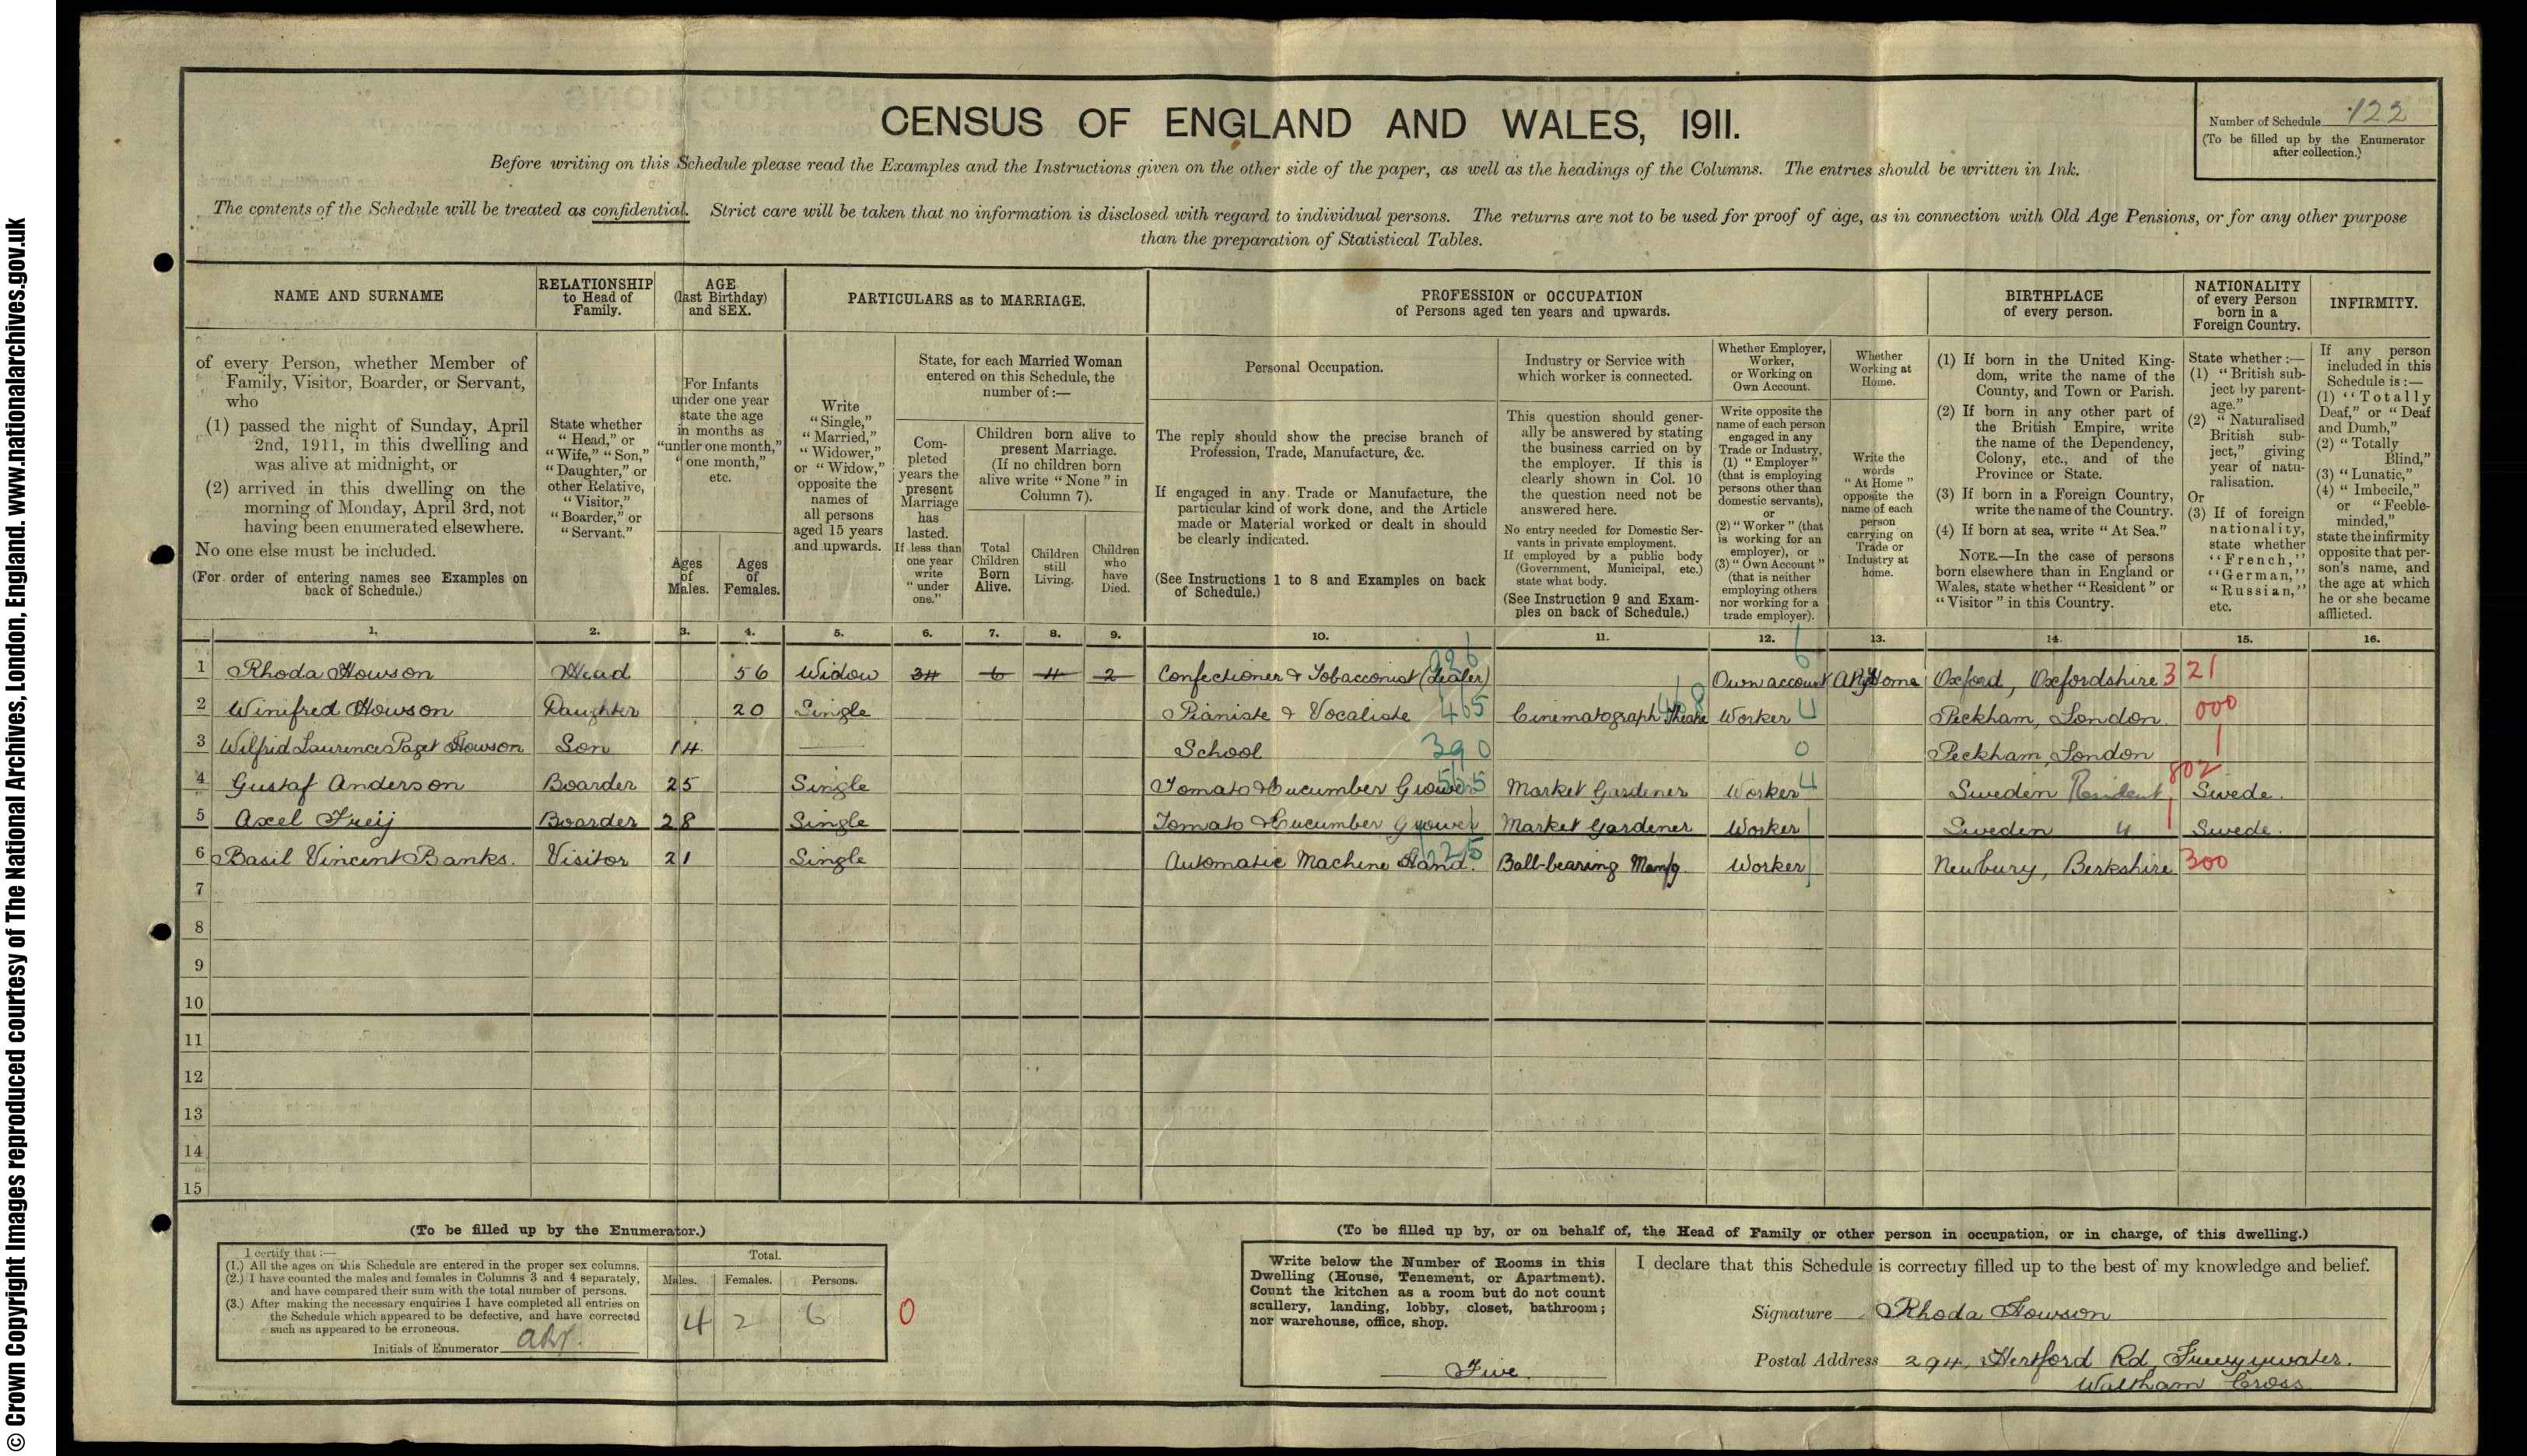 © Crown Copyright Images reproduced courtesy of The National Archives, London, England. www.nationalarchives.gov.uk
CENSUS OF ENGLAND AND WALES, 1911.
Number of Schedule 122
(To be filled up by the Enumerator
after collection.)
Before writing on this Schedule please read the Examples and the Instructions given on the other side of the paper, as well as the headings of the Columns. The entries should be written in Ink.
The contents of the Schedule will be treated as confidential. Strict care will be taken that no information is disclosed with regard to individual persons. The returns are not to be used for proof of age, as in connection with Old Age Pensions, or for any other purpose
than the preparation of Statistical Tables.
NAME AND SURNAME
of every Person, whether Member of
Family, Visitor, Boarder, or Servant,
who
(1) passed the night of Sunday, April
2nd, 1911, in this dwelling and
was alive at midnight, or
(2) arrived in this dwelling on the
morning of Monday, April 3rd, not
having been enumerated elsewhere.
No one else must be included.
(For order of entering names see Examples on
back of Schedule.)
RELATIONSHIP
to Head of
Family.
State whether
"Head," or
"Wife," "Son,"
"Daughter," or
other Relative,
"Visitor,"
"Boarder," or
"Servant."
AGE
(last Birthday)
and SEX.
For Infants
under one year
state the age
in months as
"under one month,"
"one month,"
etc.
Ages
of
Males.
Ages
of
Females.
PARTICULARS as to MARRIAGE.
Write
"Single,"
"Married,"
"Widower,"
or "Widow,"
opposite the
names of
all persons
aged 15 years
and upwards.
State, for each Married Woman
entered on this Schedule, the
number of:—
Com-
pleted
years the
present
Marriage
has
lasted.
If less than
one year
write
"under
one."
Children born alive to
present Marriage.
(If no children born
alive write "None" in
Column 7).
Total
Children
Born
Alive.
Children
still
Living.
Children
who
have
Died.
PROFESSION or OCCUPATION
of Persons aged ten years and upwards.
Personal Occupation.
The reply should show the precise branch of
Profession, Trade, Manufacture, &c.
If engaged in any Trade or Manufacture, the
particular kind of work done, and the Article
made or Material worked or dealt in should
be clearly indicated.
(See Instructions 1 to 8 and Examples on back
of Schedule.)
Industry or Service with
which worker is connected.
This question should gener-
ally be answered by stating
the business carried on by
the employer. If this is
clearly shown in Col. 10
the question need not be
answered here.
No entry needed for Domestic Ser-
vants in private employment.
If employed by a public body
(Government, Municipal, etc.)
state what body.
(See Instruction 9 and Exam-
ples on back of Schedule.)
Whether Employer,
Worker,
or Working on
Own Account.
Write opposite the
name of each person
engaged in any
Trade or Industry,
(1) "Employer"
(that is employing
persons other than
domestic servants),
or
(2) "Worker" (that
is working for an
employer), or
(3) "Own Account"
(that is neither
employing others
nor working for a
trade employer).
Whether
Working at
Home.
Write the
words
"At Home"
opposite the
name of each
person
carrying on
Trade or
Industry at
home.
BIRTHPLACE
of every person.
(1) If born in the United King-
dom, write the name of the
County, and Town or Parish.
(2) If born in any other part of
the British Empire, write
the name of the Dependency,
Colony, etc., and of the
Province or State.
(3) If born in a Foreign Country,
write the name of the Country.
(4) If born at sea, write "At Sea."
NOTE.—In the case of persons
born elsewhere than in England or
Wales, state whether "Resident" or
"Visitor" in this Country.
NATIONALITY
of every Person
born in a
Foreign Country.
State whether:—
(1) "British sub-
ject by parent-
age."
(2) "Naturalised
British sub-
ject," giving
year of natu-
ralisation.
Or
(3) If of foreign
nationality,
state whether
"French,"
"German,"
"Russian,"
etc.
INFIRMITY.
If any person
included in this
Schedule is:—
(1) "Totally
Deaf," or "Deaf
and Dumb,"
(2) "Totally
Blind,"
(3) "Lunatic,"
(4) "Imbecile,"
or "Feeble-
minded,"
state the infirmity
opposite that per-
son's name, and
the age at which
he or she became
afflicted.
1. 2. 3. 4. 5. 6. 7. 8. 9. 10. 11. 12. 13. 14. 15. 16.
1 Rhoda Howson Head 56 Widow 34 6 4 2 Confectioner & Tobacconist (Dealer) 926 Own account 6 At Home Oxford, Oxfordshire 321
2 Winifred Howson Daughter 20 Single Pianiste & Vocaliste 465 Cinematograph Theatre 468 Worker 4 Peckham, London 000
3 Wilfrid Laurence Paget Howson Son 14 School 390 0 Peckham, London
4 Gustaf Anderson Boarder 25 Single Tomato & Cucumber Grower 565 Market Gardener Worker 4 Sweden Resident 802 Swede.
5 Axel Freij Boarder 28 Single Tomato & Cucumber Grower Market Gardener Worker Sweden Swede.
6 Basil Vincent Banks. Visitor 21 Single Automatic Machine Hand. Ball-bearing Manfg. Worker Newbury, Berkshire 300
7
8
9
10
11
12
13
14
15
(To be filled up by the Enumerator.)
I certify that:—
(1.) All the ages on this Schedule are entered in the proper sex columns.
(2.) I have counted the males and females in Columns 3 and 4 separately,
and have compared their sum with the total number of persons.
(3.) After making the necessary enquiries I have completed all entries on
the Schedule which appeared to be defective, and have corrected
such as appeared to be erroneous.
Initials of Enumerator
Total.
Males. Females. Persons.
4 2 6
0
(To be filled up by, or on behalf of, the Head of Family or other person in occupation, or in charge, of this dwelling.)
Write below the Number of Rooms in this
Dwelling (House, Tenement, or Apartment).
Count the kitchen as a room but do not count
scullery, landing, lobby, closet, bathroom;
nor warehouse, office, shop.
Five.
I declare that this Schedule is correctly filled up to the best of my knowledge and belief.
Signature Rhoda Howson
Postal Address 294, Hertford Rd, Freezywater.
Waltham Cross